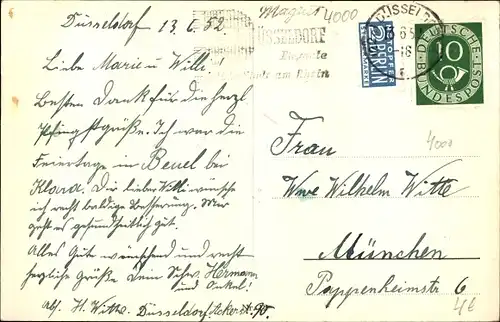 Düsseldorf 13.6.52.
Liebe Marie u. Willi!
Besten Dank für die herzl.
Pfingstgrüße. Ich war die
Feiertage in Beuel bei
Klara. Dir lieber Willi wünsche
ich recht baldige Besserung. Mir
geht es gesundheitlich gut.
Alles Gute wünschend und recht
herzliche Grüße Dein Schw. Hermann
und Onkel!
Abs. H. Witte, Düsseldorf, Ackerst. 90.
4000
DÜSSELDORF
Elegante
Stadt am Rhein
DÜSSEL
2
NOTOPFER
BERLIN
STEUERMARKE
10
DEUTSCHE
BUNDESPOST
4000
Frau
Wwe Wilhelm Witte
München
Pappenheimstr. 6
4€